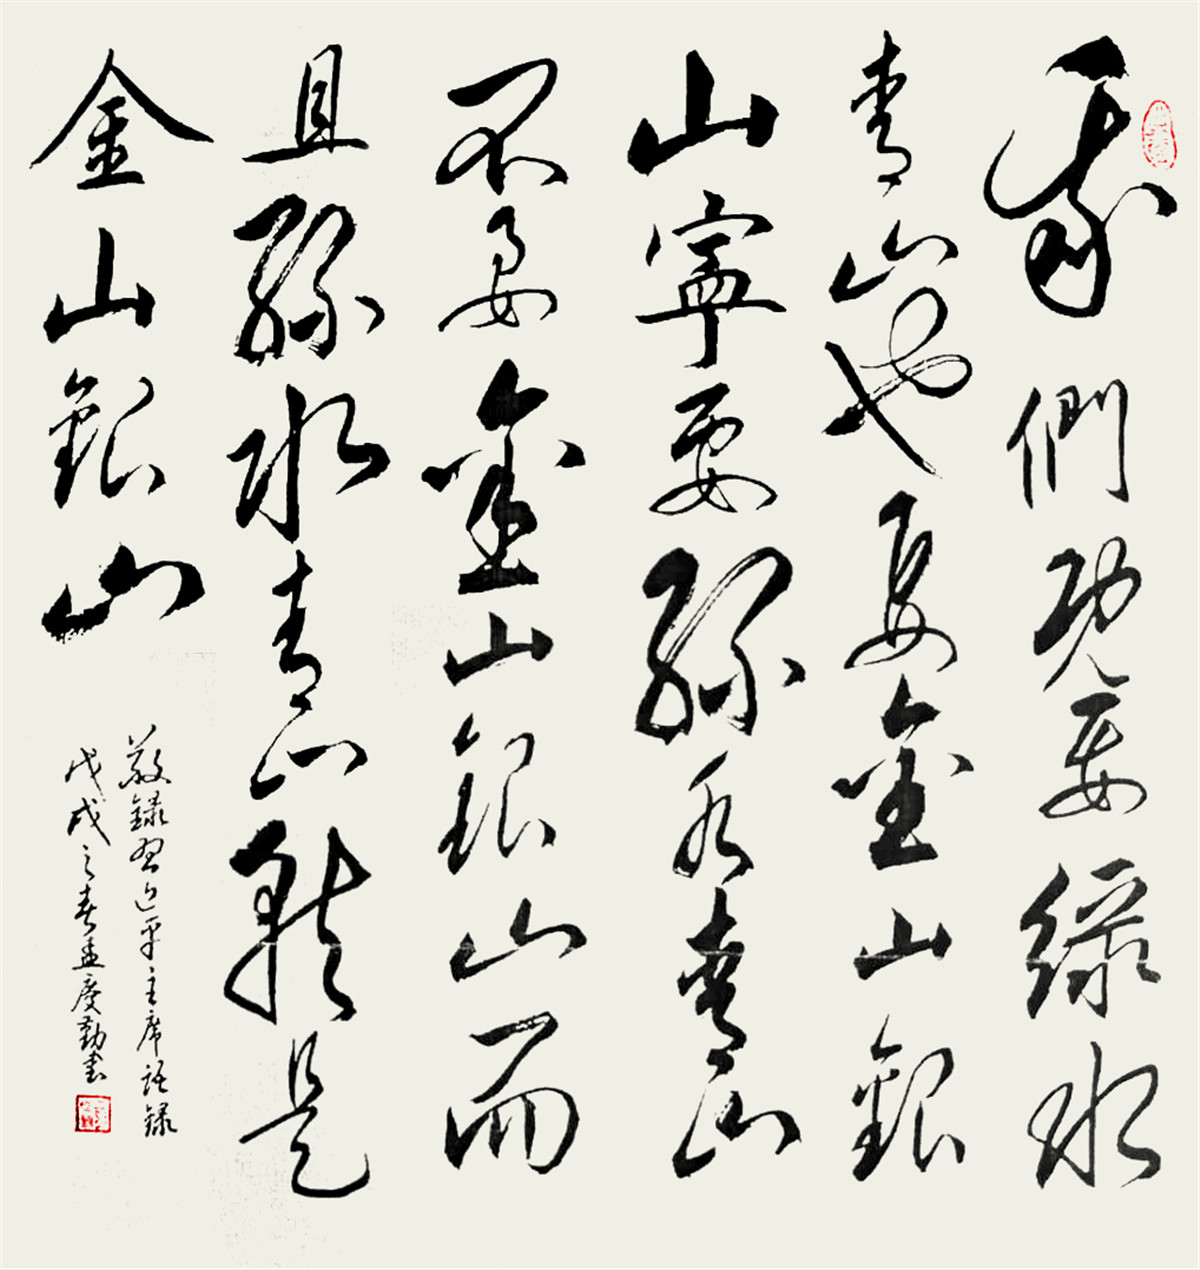 我們既要綠水
青山也要金山銀
山寧要綠水青山
不要金山銀山而
且綠水青山就是
金山銀山
敬録習近平主席語録
戊戌之春孟慶勤書